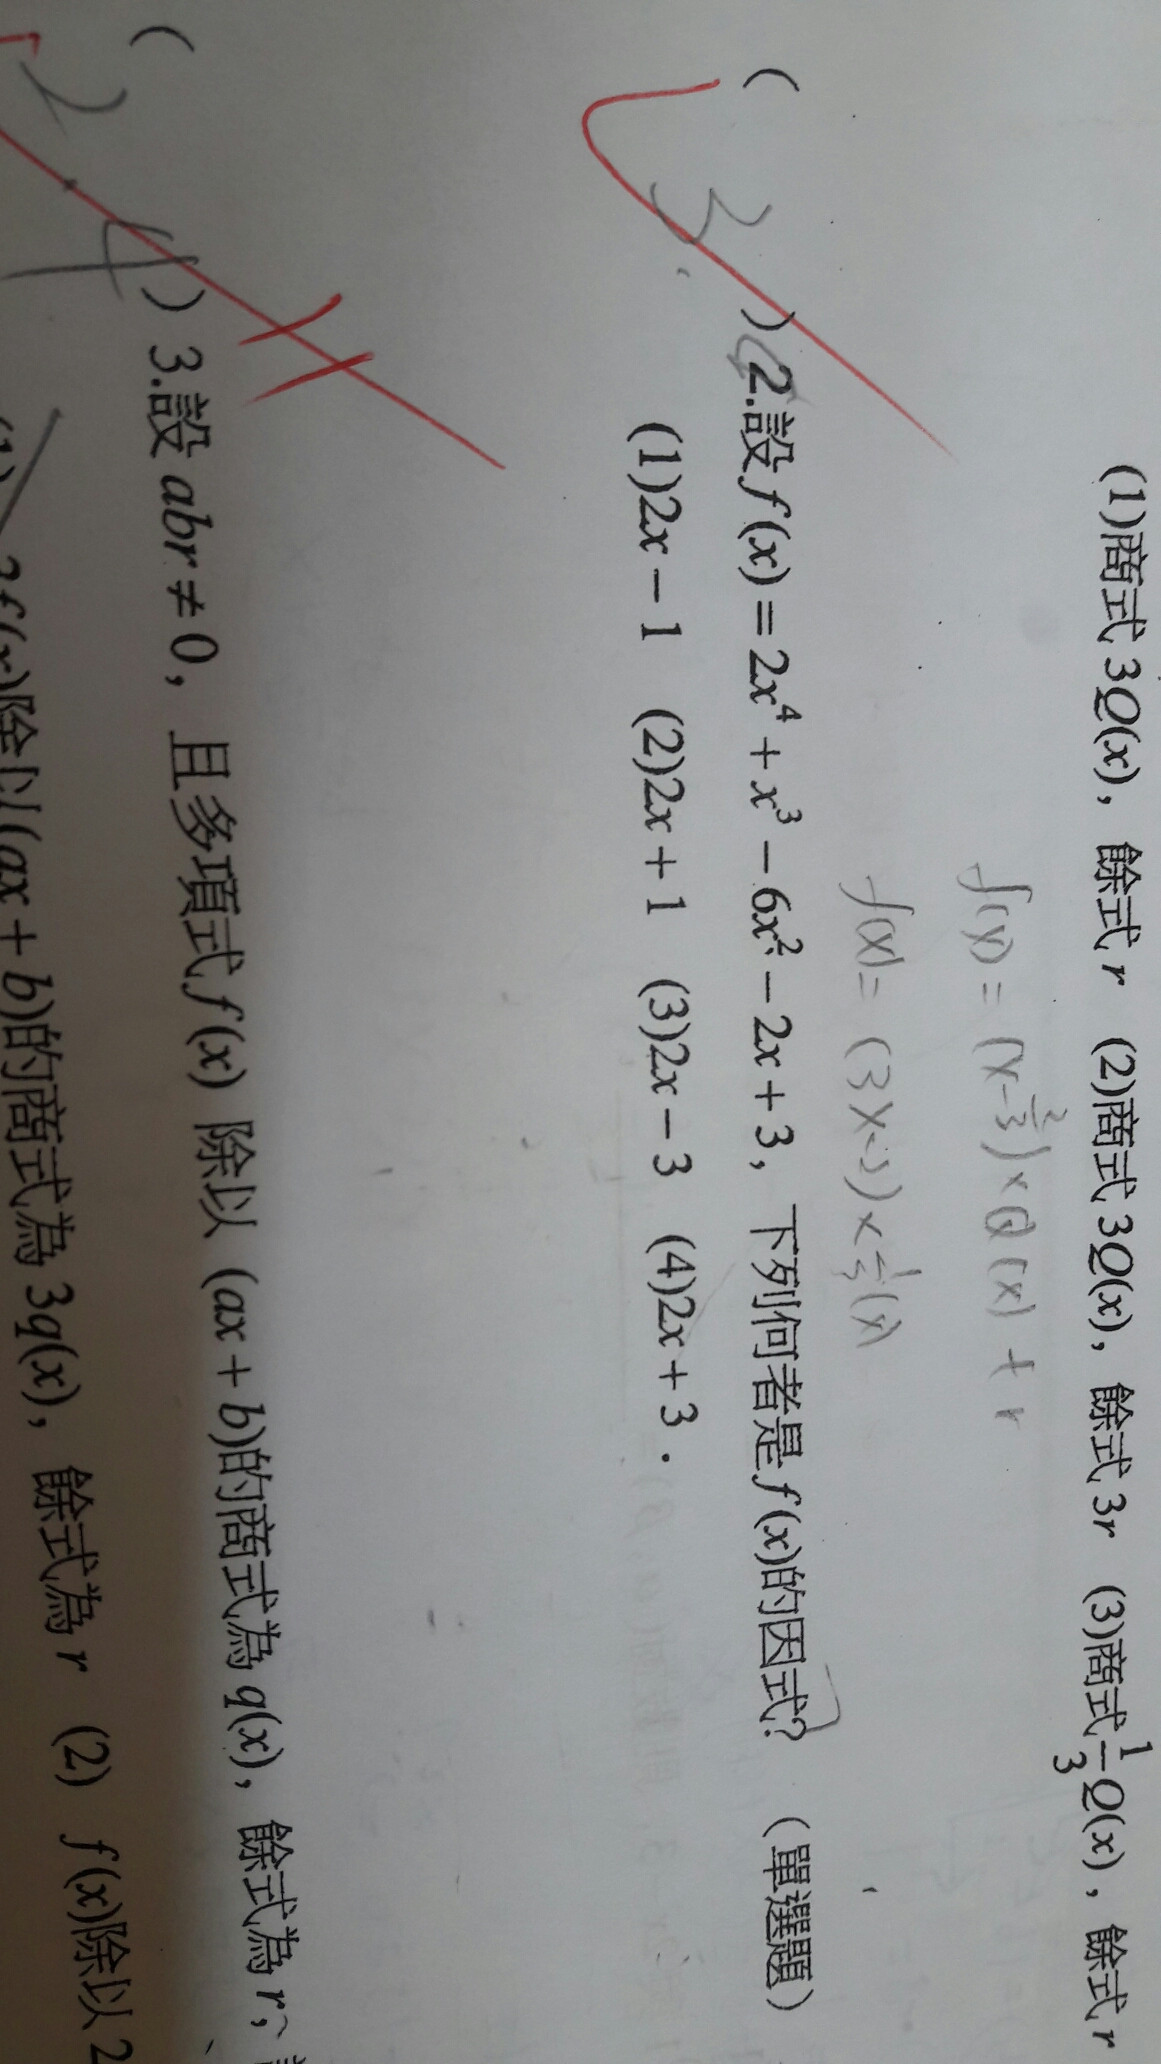 (1)商式 3Q(x)，餘式 r (2)商式 3Q(x)，餘式 3r (3)商式 1/3 Q(x)，餘式 r
f(x) = (x - 2/3) × Q(x) + r
f(x) = (3x-2) × 1/3 (x)
( 3 ) 2.設 f(x) = 2x⁴ + x³ − 6x² − 2x + 3，下列何者是 f(x)的因式? （單選題）
(1)2x − 1 (2)2x + 1 (3)2x − 3 (4)2x + 3．
( 2.4 ) 3.設 abr ≠ 0，且多項式 f(x) 除以 (ax + b)的商式為 q(x)，餘式為 r，
(1) 3f(x)除以(ax + b)的商式為 3q(x)，餘式為 r (2) f(x)除以 2